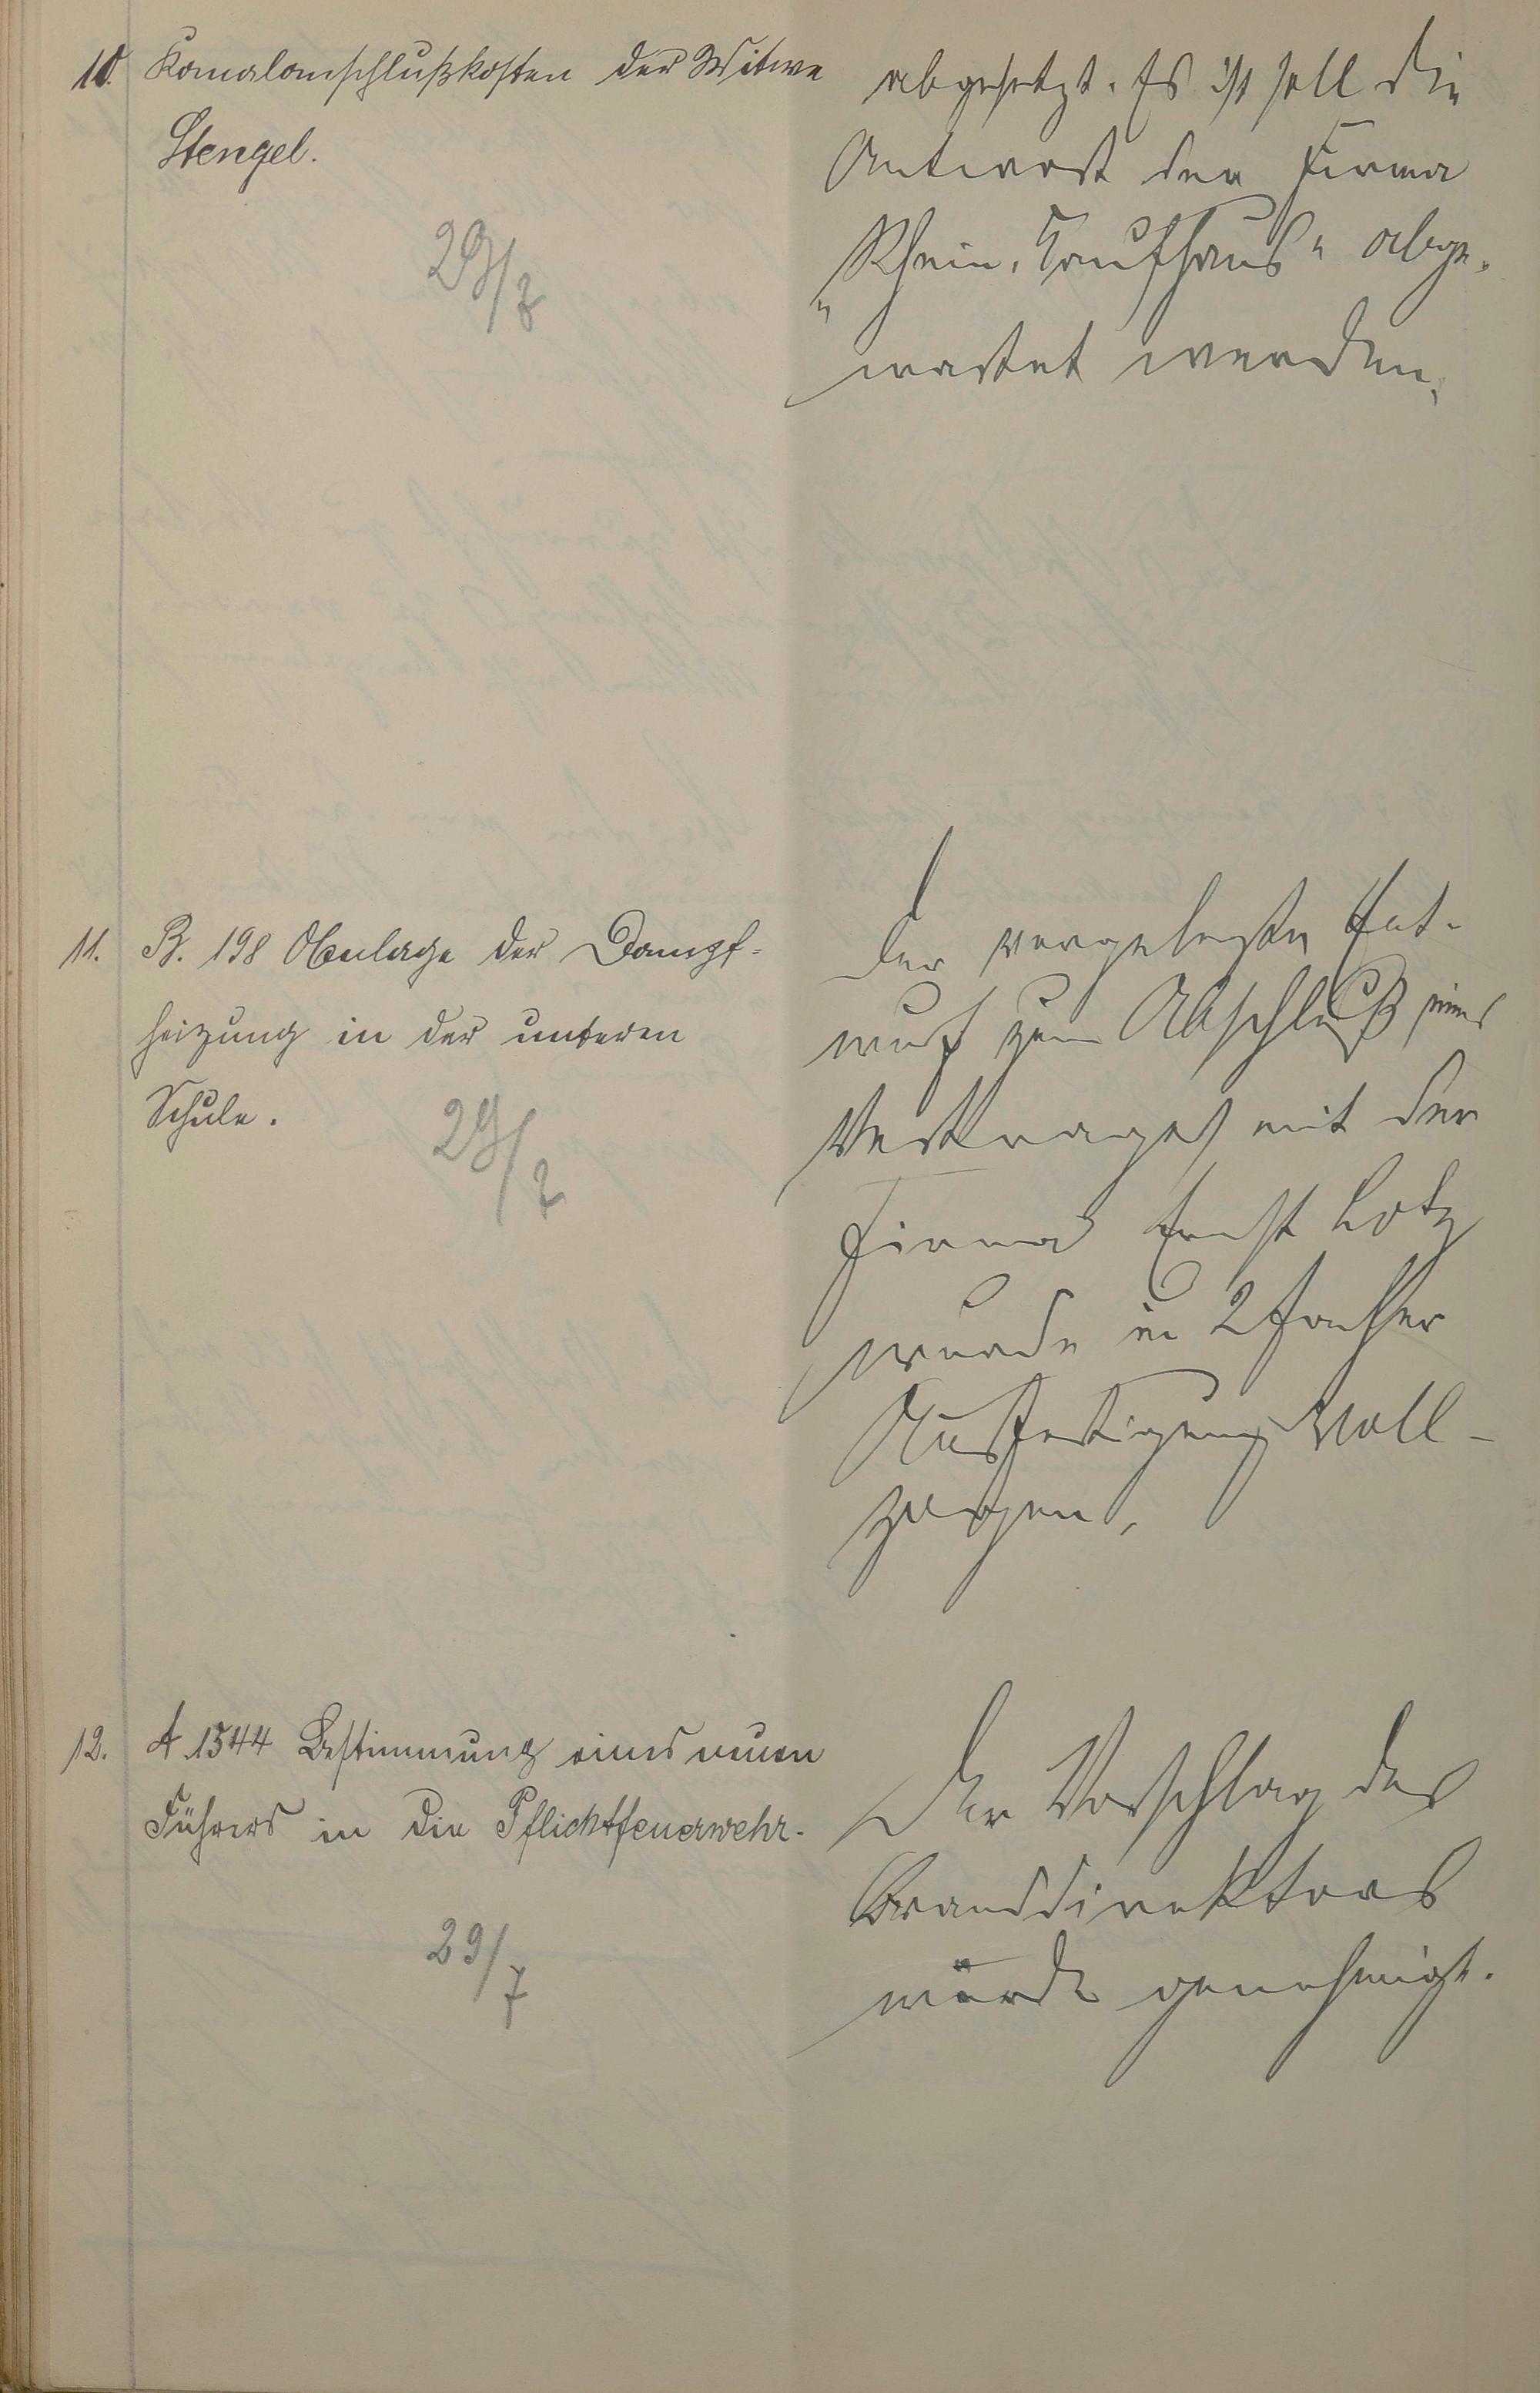 10. Kanalanschlußkosten der Witwe
Stengel.
29/7
abgesetzt. Es ist soll die
Antwort der Firma
„Rhein. Kaufhaus" abge-
wartet werden.
11. B. 198 Anlage der Dampf-
heizung in der unteren
Schule.
29/7
Der vorgelegte Ent-
wurf zum Abschluß eines
Vertrages mit der
Firma Ernst Lotz
wurde in 2facher
Ausfertigung voll-
zogen.
12. A 1544 Bestimmung eines neuen
Führers in die Pflichtfeuerwehr.
29/7
Der Vorschlag des
Branddirektors
wurde genehmigt.